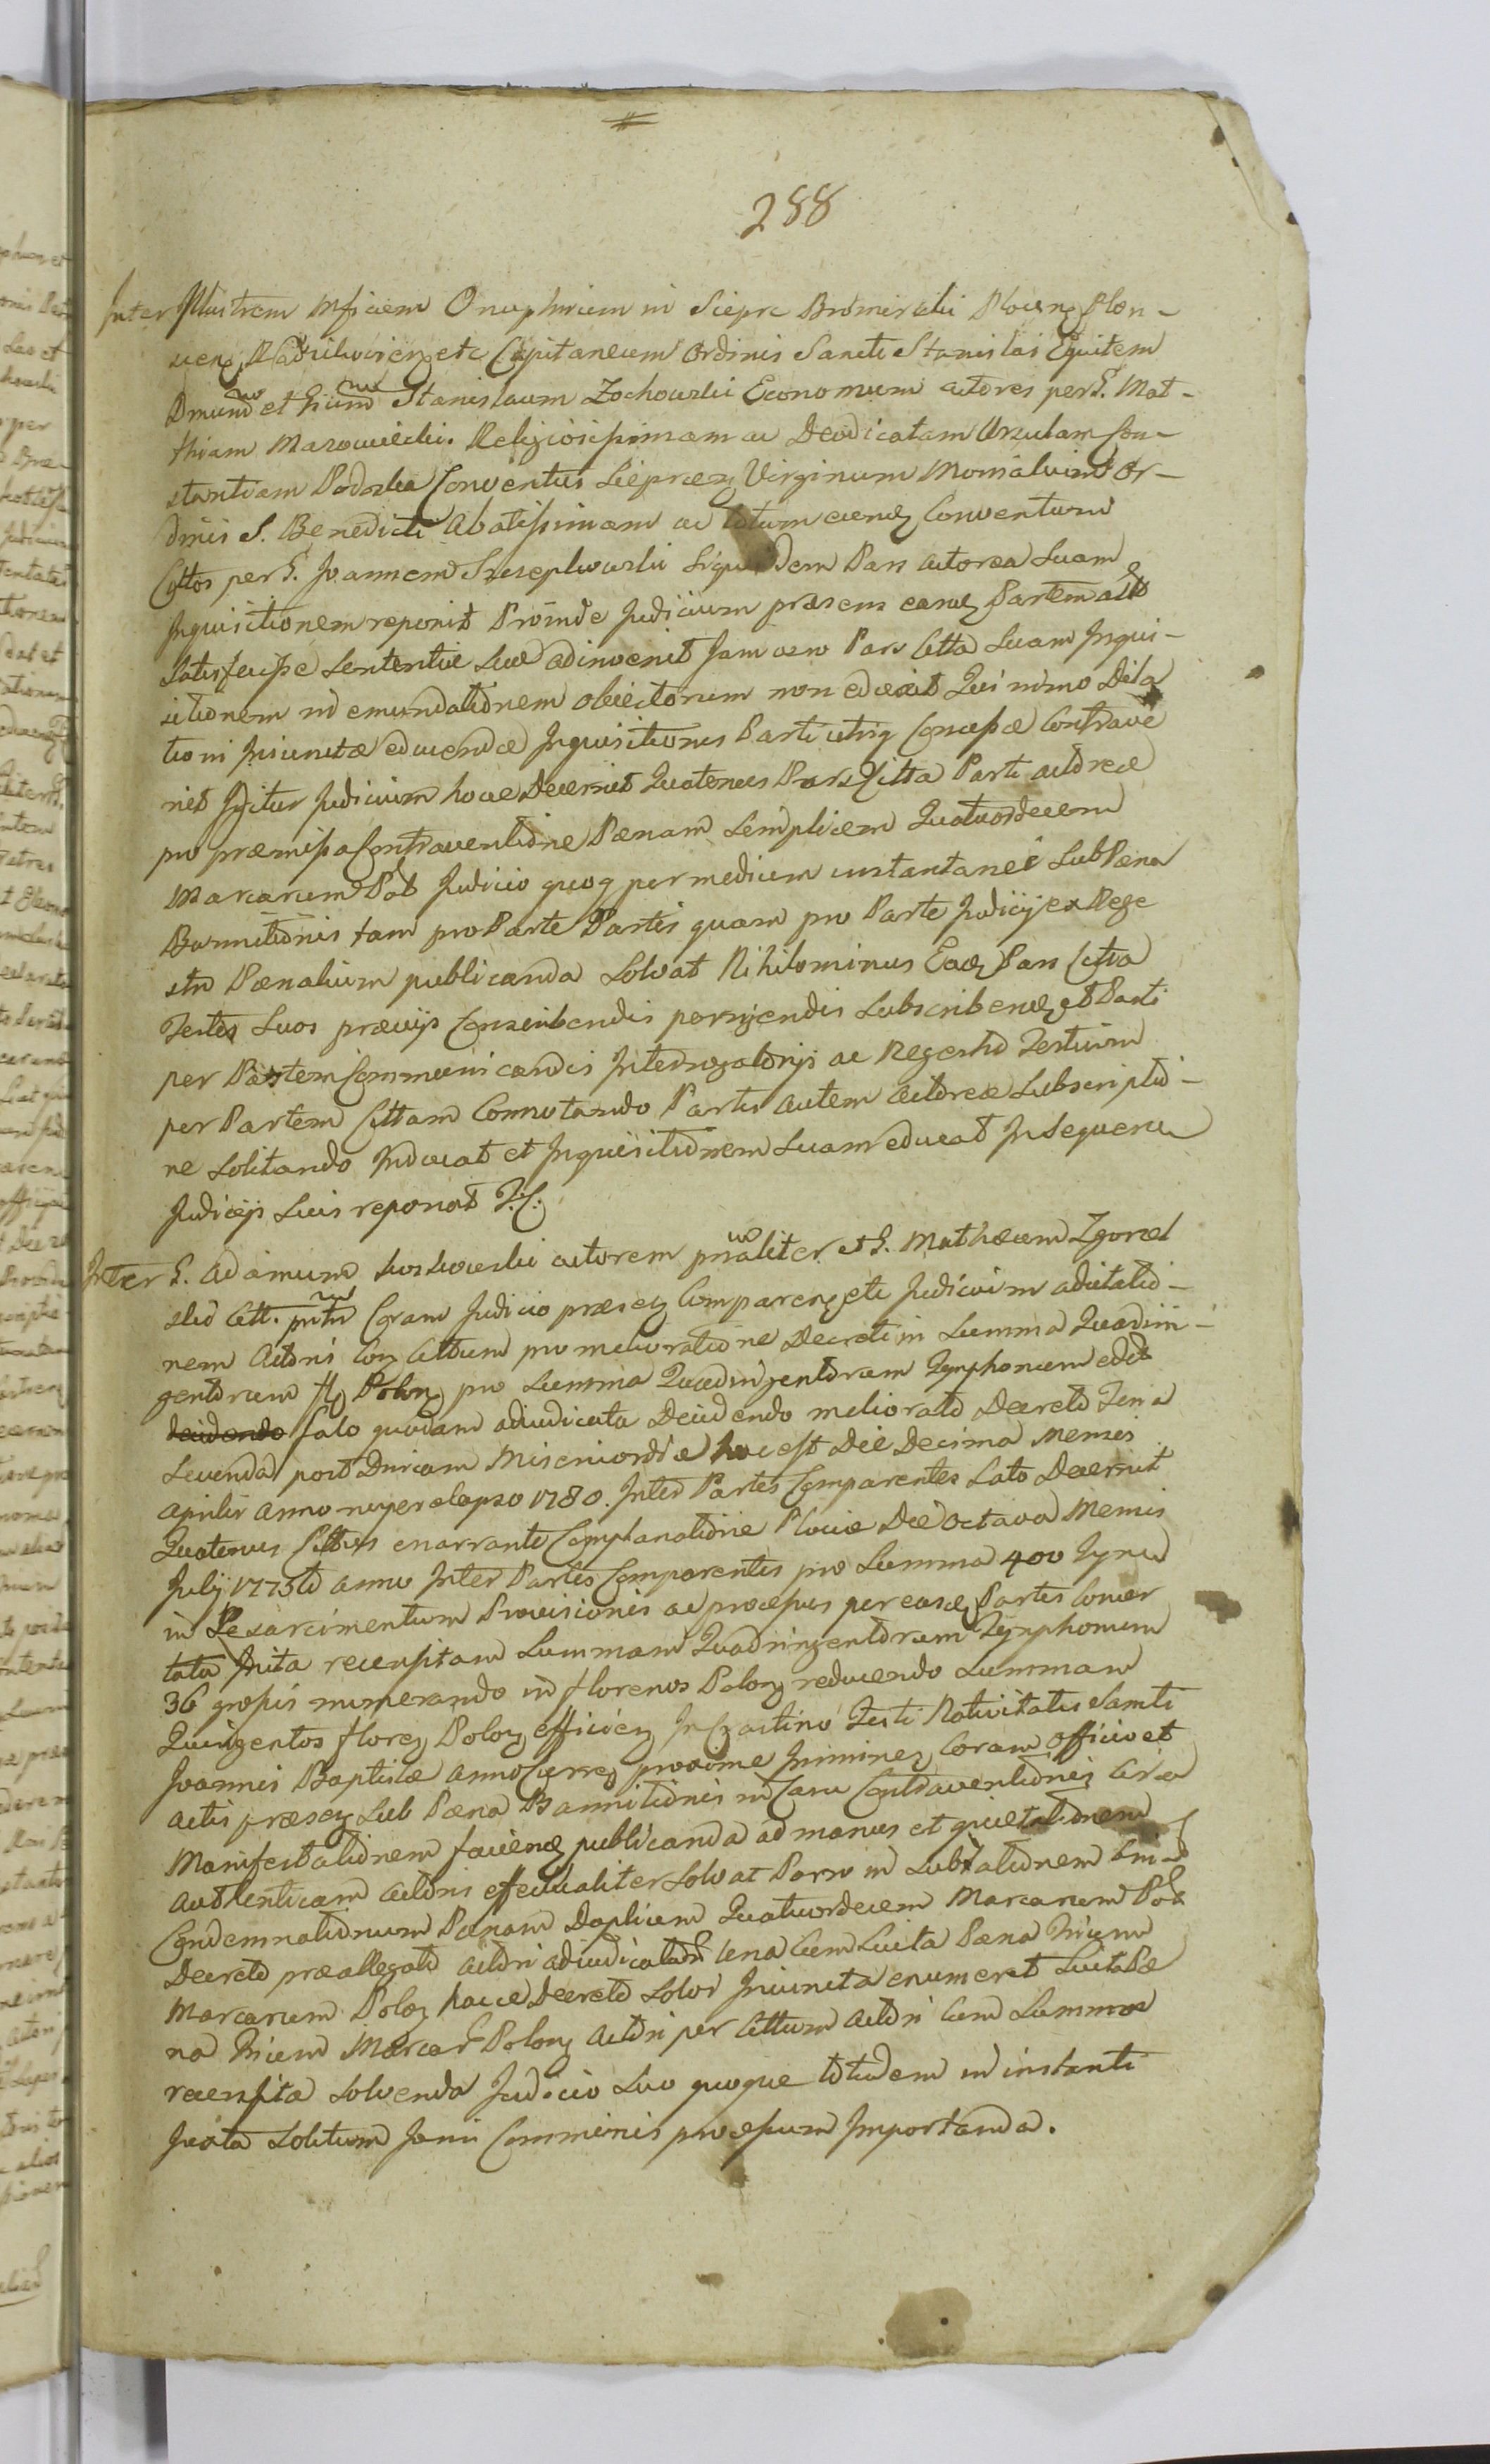 288
Inter Illustrem Mficum Onuphrium in Sieprc Bromirski Plocen Plon-
ucen Radzilovien etc Capitaneum Ordinis Sancti Stanislai Equitem
Dnum et Gsum Stanislaum Zochowski Economum actores per G. Mat-
thiam Mazowiecki. Religiosissimam ac Deodicatam Ursulam Con-
stantiam Podoska Conventus Sieprcen Virginum Monialium Or-
dinis S. Benedicti Abatissimam ac totum Conventum
Cittos per G. Joannem Siquidem Pars actorea Suam
Inquisitionem reponit Proinde Judicium praesens eandem Partem actor
Satisfecisse Sententiae Suae adinvenit Jam vero Pars Citta Suam Inqui-
sitionem in emundationem obiectorum non eduxit Qui nimo Dila
tioni Iniunctae educendae Inquisitionis Parti utrique Concessae Contrave
nit Igitur Judicium hocce Decernit Quatenus Pars Citta Parti actoreae
pro praemissa Contraventione Paenam Semplicem Quatuordecem
Marcarum Pol Judicio quoq per medium instantanee Sub Paena
Bannitionis tam pro Parte Partis quam pro Parte Judicij ex Rege
stro Paenalium publicanda Solvat Nihilominus Eadem Pars Citta
Testes Suos praevijs Conscribendis porrigendis Subscribendis et Parti
per Partem Communicandis Interrogatorijs ac Regestro Testium
per Partem Cittam Connotando Partis autem actoreae Subscriptio-
ne Solitando Inducat et Inquisitionem Suam educat In Sequen
Judicijs Suis reponat T.C.
Inter G. Adamum actorem prsaliter et G. Mathaeum Zgorzel
ski Citt. Coram Judicio praesen Comparen etc Judicium adcitatio-
nem Actoris Con Cittum pro melioratione Decreti in Summa Quadrin-
gentorum fl Polon pro Summa Quadringentorum Tynphonum edit
deidendo falo quodam adiudicata Deidendo meliorato Decreto Feria
Secunda post Dnicam Misericordiae hoc est Die Decima Mensis
Aprilis Anno nuper elapso 1780. Inter Partes Comparentes Lato Decernit
Quatenus Cittus enarrante Complanatione Plociae Die Octava Mensis
Julij 1775to Anno Inter Partes Comparentes pro Summa 400 Tynen
in Resarcimentum Provisionis ac processus per easdem Partes Conver
tata Inita recensitam Summam Quadringentorum Tynphonum
36 grossis numerando in florenos Polon reducendo Summam
Quingentos floren Polon efficien In Crastino Festi Nativitatis Sancti
Joannis Baptistae Anno Curren proxime Imminen Coram Officio et
actis praesen Sub Paena Bannitionis in Casu Contraventionis Circa
Manifestationem faciend publicanda ad manus et quietationem
authenticam Actoris effectualiter Solvat Porro in
Condemnationum Paenam Duplicem Quatuordecem Marcarum Pol
Decreto praeallegato Actori adiudicatam una Cum Luita Paena Trium
Marcarum Polon hocce Decreto Solvi Iniuncta enumeret Luita Pae
na Trium Marcar Polon Actori per Cittum Actori Cum Summa
recensita Solvenda Judicio Suo quoque totidem in instanti
Juxta Solitum Communis processum Importanda.